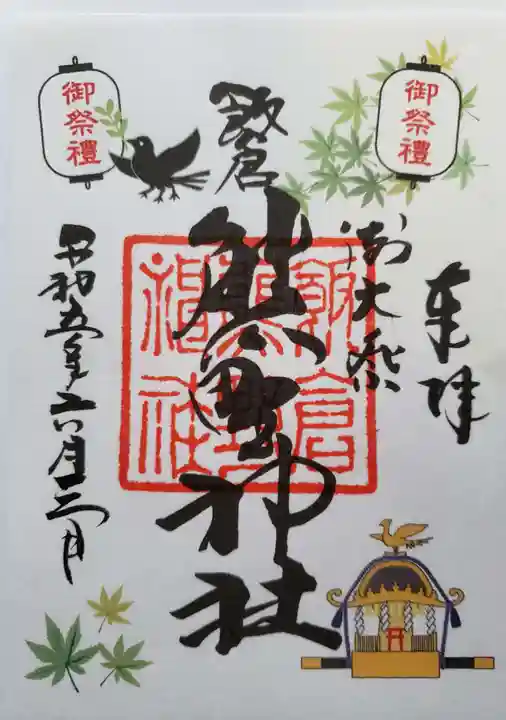 御祭禮
奉拝
御大祭
飯倉
熊野神社
御祭禮
令和五年六月三日
飯倉
熊野
神社